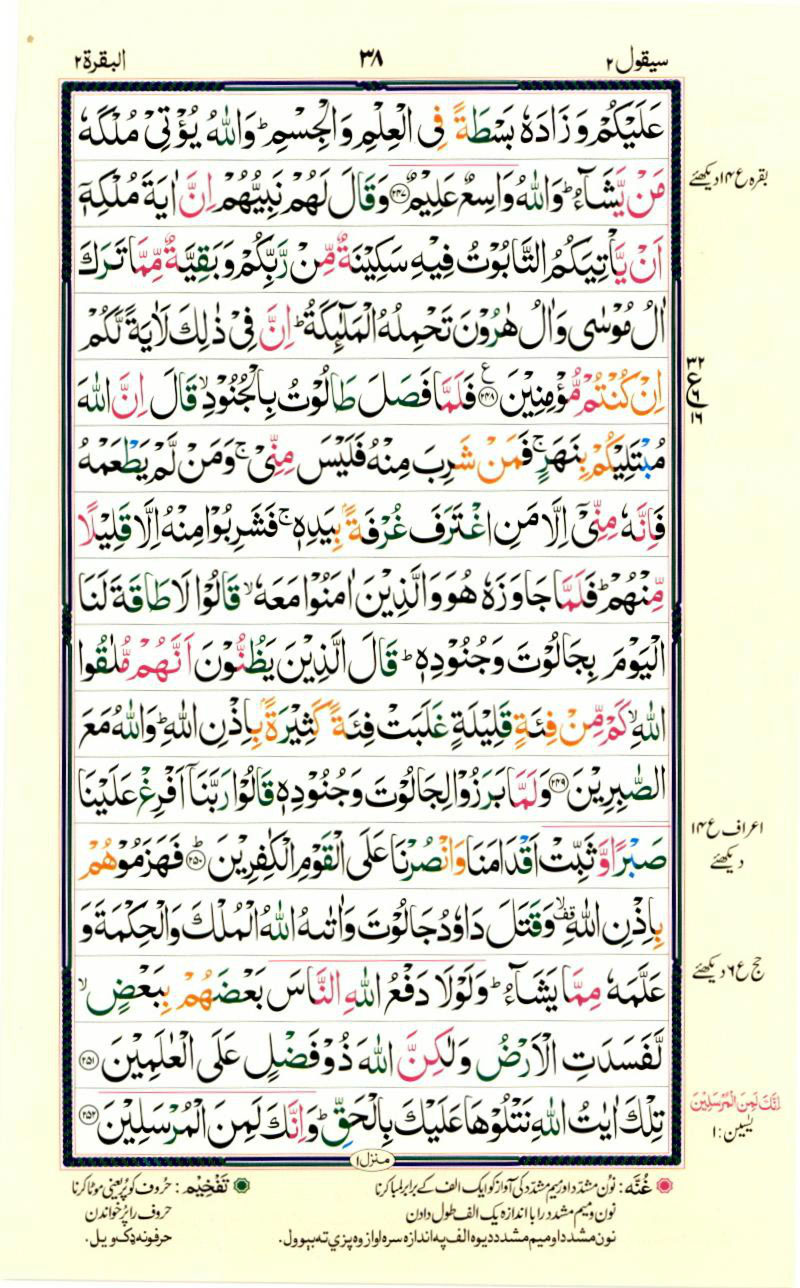 سيقول ٢ ٣٨ البقرة ٢
عَلَيۡكُمۡ وَزَادَهٗ بَسۡطَةً فِي الۡعِلۡمِ وَالۡجِسۡمِ‌ؕ وَاللّٰهُ يُؤۡتِىۡ مُلۡكَهٗ
مَنۡ يَّشَآءُ‌ؕ وَاللّٰهُ وَاسِعٌ عَلِيۡمٌ ﴿۲۴۷﴾ وَقَالَ لَهُمۡ نَبِيُّهُمۡ اِنَّ اٰيَةَ مُلۡكِهٖۤ
بقرہ ع ۱۴ دیکھئے
اَنۡ يَّاۡتِيَكُمُ التَّابُوۡتُ فِيۡهِ سَکِيۡنَةٌ مِّنۡ رَّبِّکُمۡ وَبَقِيَّةٌ مِّمَّا تَرَكَ
اٰلُ مُوۡسٰى وَاٰلُ هٰرُوۡنَ تَحۡمِلُهُ الۡمَلٰٓئِكَةُ‌ ؕ اِنَّ فِىۡ ذٰلِكَ لَاٰيَةً لَّکُمۡ
اِنۡ كُنۡتُمۡ مُّؤۡمِنِيۡنَ ﴿۲۴۸﴾ فَلَمَّا فَصَلَ طَالُوۡتُ بِالۡجُـنُوۡدِۙ قَالَ اِنَّ اللّٰهَ
۳۲
ع
۱۶
مُبۡتَلِيۡکُمۡ بِنَهَرٍ‌ۚ فَمَنۡ شَرِبَ مِنۡهُ فَلَيۡسَ مِنِّىۡ‌ۚ وَمَنۡ لَّمۡ يَطۡعَمۡهُ
فَاِنَّهٗ مِنِّىۡٓ اِلَّا مَنِ اغۡتَرَفَ غُرۡفَةً ۢ بِيَدِهٖ‌‌ۚ فَشَرِبُوۡا مِنۡهُ اِلَّا قَلِيۡلًا
مِّنۡهُمۡ‌ؕ فَلَمَّا جَاوَزَهٗ هُوَ وَالَّذِيۡنَ اٰمَنُوۡا مَعَهٗ ۙ قَالُوۡا لَا طَاقَةَ لَنَا
الۡيَوۡمَ بِجَالُوۡتَ وَجُنُوۡدِهٖ‌ؕ قَالَ الَّذِيۡنَ يَظُنُّوۡنَ اَنَّهُمۡ مُّلٰقُوا
اللّٰهِۙ کَمۡ مِّنۡ فِئَةٍ قَلِيۡلَةٍ غَلَبَتۡ فِئَةً كَثِيۡرَةً ۢ بِاِذۡنِ اللّٰهِ‌ؕ وَاللّٰهُ مَعَ
الصّٰبِرِيۡنَ ﴿۲۴۹﴾ وَلَمَّا بَرَزُوۡا لِجَـالُوۡتَ وَجُنُوۡدِهٖ قَالُوۡا رَبَّنَآ اَفۡرِغۡ عَلَيۡنَا
صَبۡرًا وَّثَبِّتۡ اَقۡدَامَنَا وَانۡصُرۡنَا عَلَى الۡقَوۡمِ الۡکٰفِرِيۡنَؕ ﴿۲۵۰﴾ فَهَزَمُوۡهُمۡ
اعراف ع ۱۴
دیکھئے
بِاِذۡنِ اللّٰهِ ۙ قف وَقَتَلَ دَاوٗدُ جَالُوۡتَ وَاٰتٰٮهُ اللّٰهُ الۡمُلۡكَ وَالۡحِکۡمَةَ وَ
عَلَّمَهٗ مِمَّا يَشَآءُ‌ ؕ وَلَوۡلَا دَفۡعُ اللّٰهِ النَّاسَ بَعۡضَهُمۡ بِبَعۡضٍۙ
حج ع ۶ دیکھئے
لَّفَسَدَتِ الۡاَرۡضُ وَلٰکِنَّ اللّٰهَ ذُوۡ فَضۡلٍ عَلَى الۡعٰلَمِيۡنَ ﴿۲۵۱﴾
تِلۡكَ اٰيٰتُ اللّٰهِ نَـتۡلُوۡهَا عَلَيۡكَ بِالۡحَـقِّ‌ؕ وَاِنَّكَ لَمِنَ الۡمُرۡسَلِيۡنَ ﴿۲۵۲﴾
اِنَّكَ لَمِنَ الۡمُرۡسَلِيۡنَ
یٰسین: ۱
منزل ۱
غُنَّه: نون مشدد اور میم مشدد کی آواز کو ایک الف کے برابر لمبا کرنا تَفْخِیْم: حروف کو پُر یعنی موٹا کرنا
نون و میم مشدد را با اندازه یک الف طول دادن حروف را پُر خواندن
نون مشدد او میم مشدد د یوه الف په اندازه سره اواز وه پزي ته بېوول. حرفونه ډک ویل.